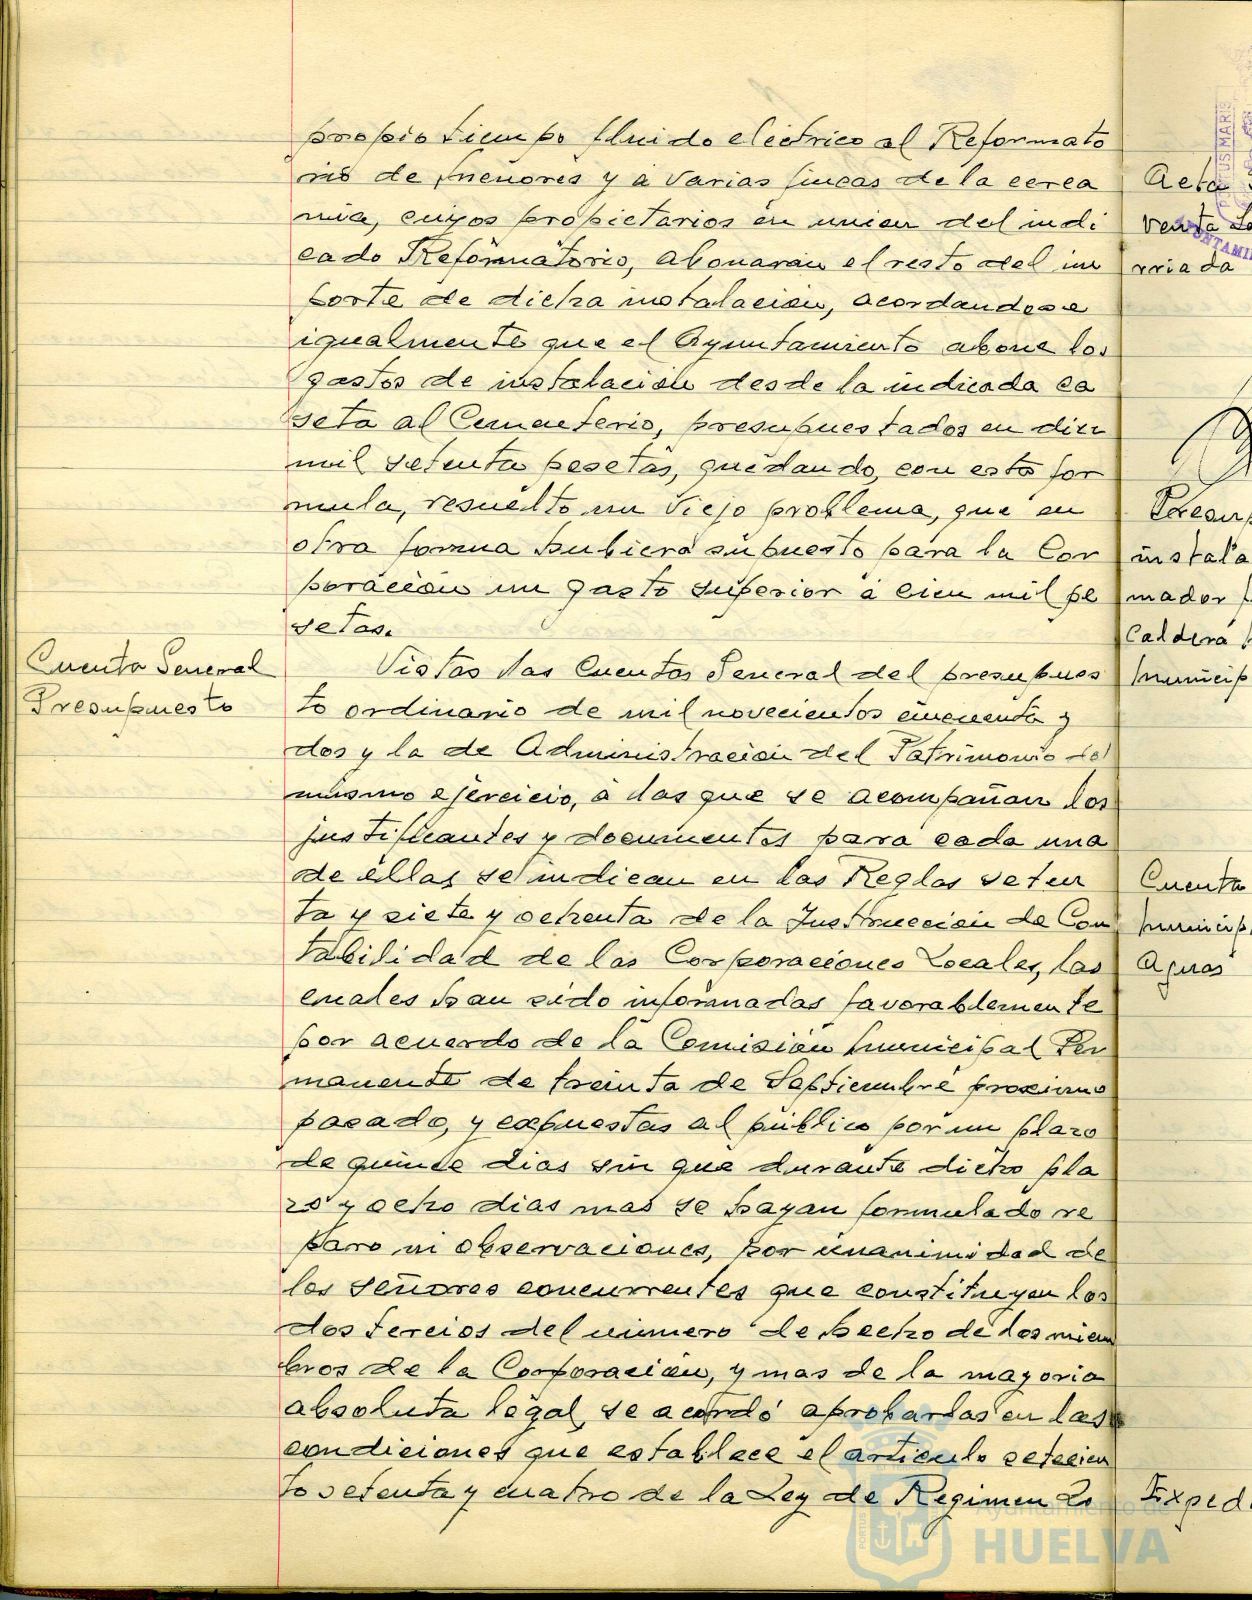 propio tiempo fluido eléctrico al Reformato
rio de menores y a varias fincas de la cerca
nía, cuyos propietarios en union del indi
cado Reformatorio, abonarán el resto del im
porte de dicha instalación, acordandose
igualmente que el Ayuntamiento abone los
gastos de instalación desde la indicada ca
seta al Cementerio, presupuestados en diez
mil setenta pesetas, quedando, con esta for
mula, resuelto un viejo problema, que en
otra forma hubiera supuesto para la Cor
poración un gasto superior a cien mil pe
setas.
Cuenta General
Presupuesto
Vistas las Cuentas General del presupues
to ordinario de mil novecientos cincuenta y
dos y la de Administración del Patrimonio del
mismo ejercicio, a las que se acompañan los
justificantes y documentos para cada una
de ellas se indican en las Reglas seten
ta y siete y ochenta de la Instrucción de Con
tabilidad de las Corporaciones Locales, las
cuales han sido informadas favorablemente
por acuerdo de la Comisión Municipal Per
manente de treinta de Septiembre proximo
pasado, y expuestas al público por un plazo
de quince dias sin que durante dicho pla
zo y ocho dias mas se hayan formulado re
paro ni observaciones, por unanimidad de
los Señores concurrentes que constituyen los
dos tercios del número de hecho de los miem
bros de la Corporación, y mas de la mayoria
absoluta legal, se acordó aprobarlas en las
condiciones que establece el articulo setecien
to setenta y cuatro de la Ley de Regimen Lo
Acta
venta
rriada
Presup
instala
mador
Caldera
Municip
Cuenta
Municip
Aguas
Exped
PORTUS MARIS
Ayuntamiento de
HUELVA